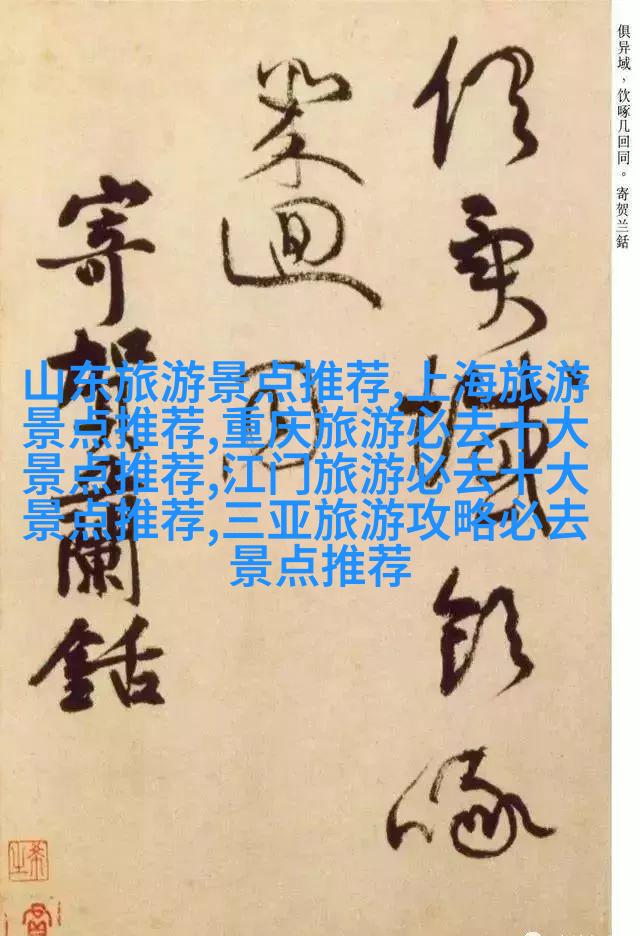 俱异域，饮啄几回同。寄贺兰銛
俱異域飲啄
幾迴同
寄賀蘭銛
山东旅游景点推荐,上海旅游
景点推荐,重庆旅游必去十大
景点推荐,江门旅游必去十大
景点推荐,三亚旅游攻略必去
景点推荐